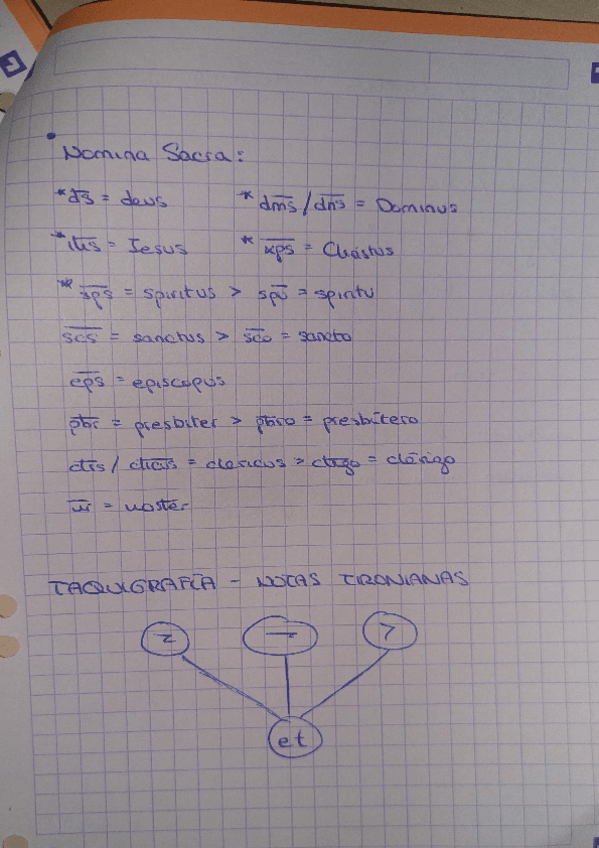 • Nomina Sacra:
* d̅s̅ = deus * dm̅s̅ / dn̅s̅ = Dominus
* ih̅s̅ = Iesus * x̅p̅s̅ = Christus
* s̅p̅s̅ = spiritus > spu̅ = spiritu
s̅c̅s̅ = sanctus > s̅c̅o̅ = sancto
e̅p̅s̅ = episcopus
p̅b̅r̅ = presbiter > p̅b̅r̅o = presbítero
cl̅r̅s̅ / = clericus > = clérigo
n̅r̅ = noster
TAQUIGRAFÍA - NOTAS TIRONIANAS
z — 7
et